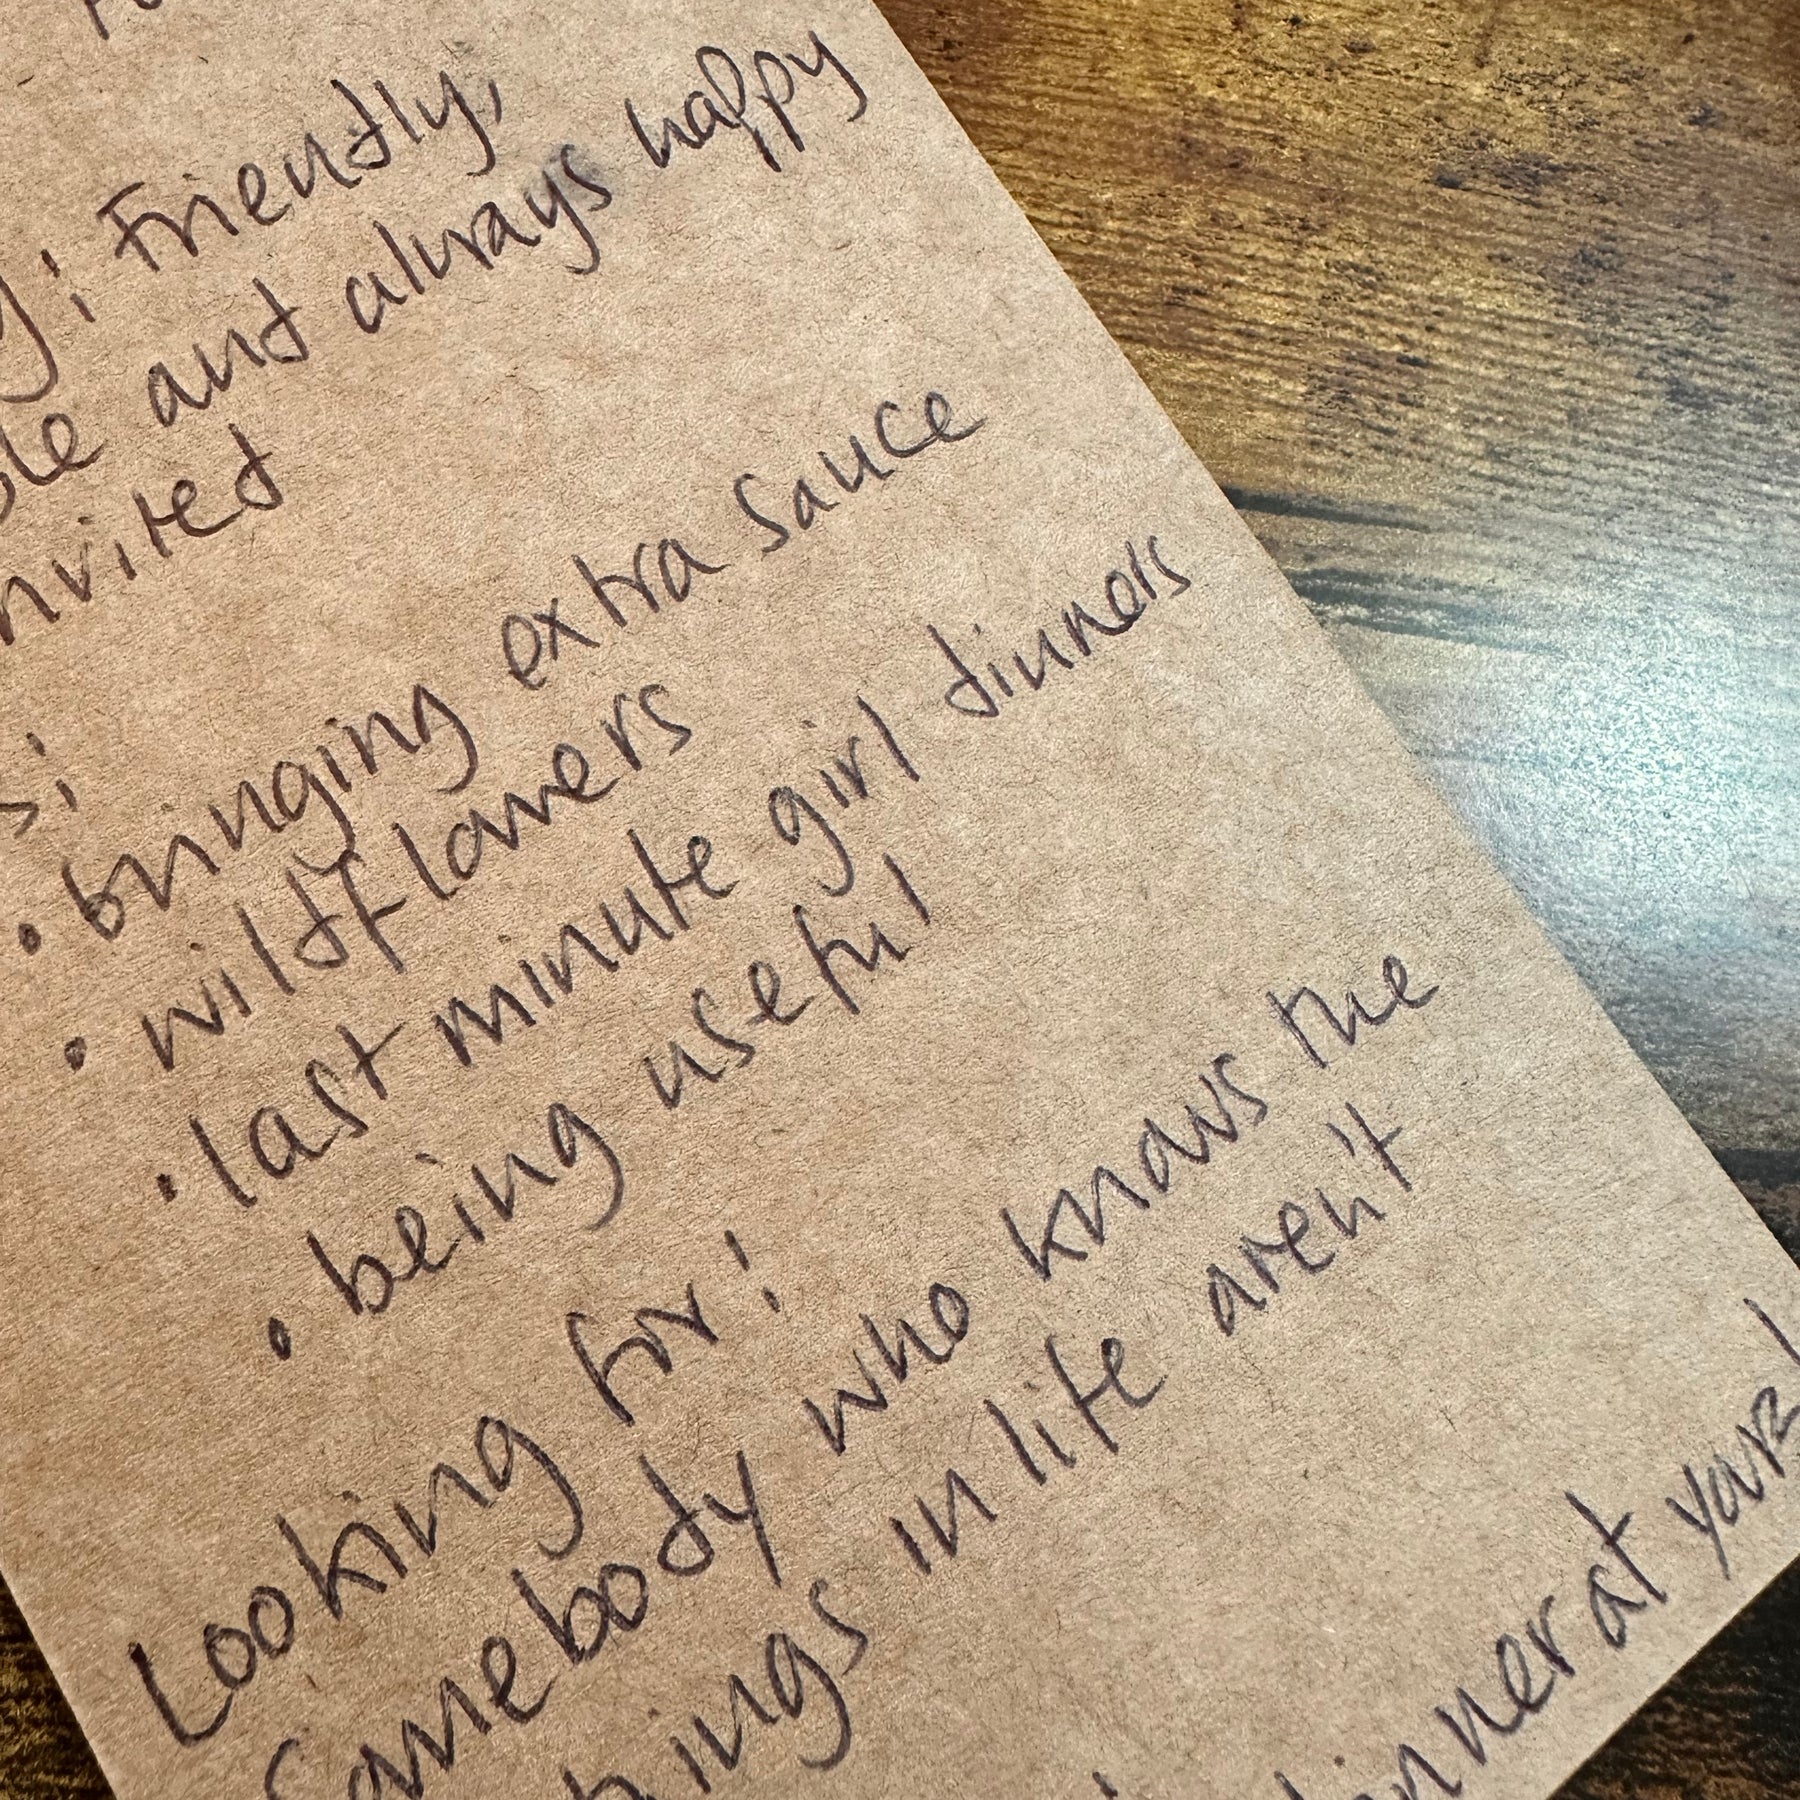 : Friendly,
and always happy
· bringing extra sauce
· wildflowers
· last minute girl dinners
· being useful
Looking for:
Somebody who knows the
in life aren't
at your